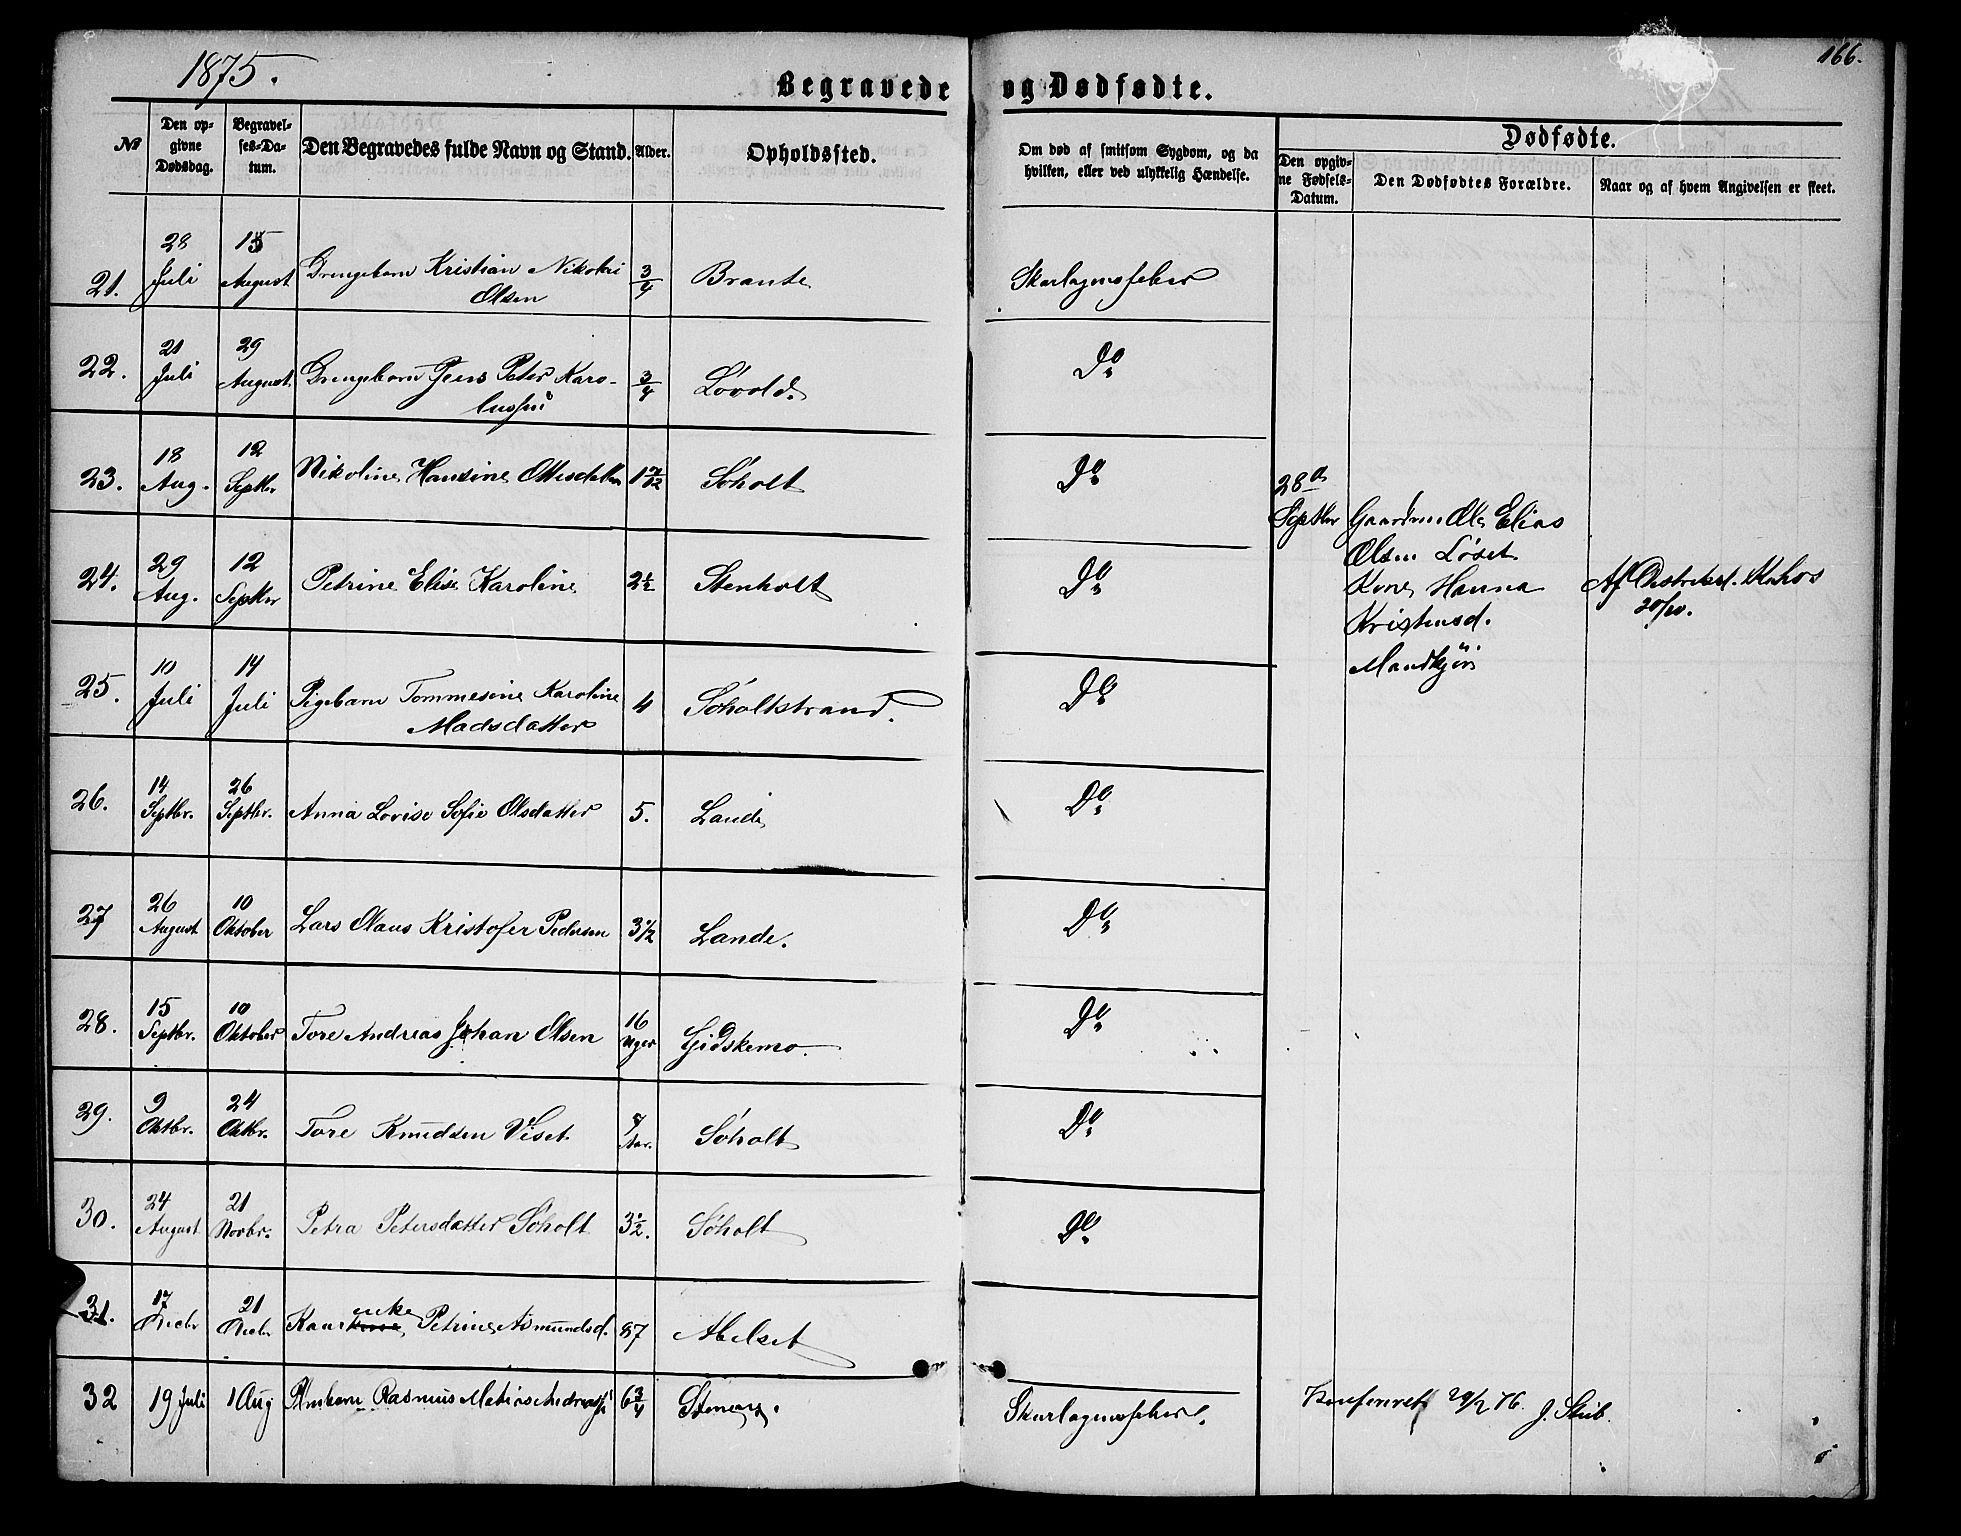 1875.
166.
Begravede og Dødfødte.
№
Den op-
givne
Dødsdag.
Begravel-
ses-Da-
tum.
Den Begravedes fulde Navn og Stand.
Alder.
Opholdssted.
Om død af smitsom Sygdom, og da
hvilken, eller ved ulykkelig Hændelse.
Dødfødte.
Den opgiv-
ne Fødsels-
Datum.
Den Dødfødtes Forældre.
Naar og af hvem Angivelsen er skeet.
21. 28 Juli 15 August Drengebarn Kristian Nikolai
Olsen 3/4 Brante Skarlagensfeber
22. 21 Juli 29 August Drengebarn Jens Peter Karo-
lussen 3/4 Lövold Do
23. 18 Aug. 12 Septbr Nikoline Hansine Ottesdatter 1 7/12 Söholt Do
24. 29 Aug. 12 Septbr Petrine Elise Karoline 2 1/2 Stenholt Do
25. 10 Juli 14 Juli Pigebarn Tommesine Karoline
Madsdatter 4 Söholtstrand. Do
26. 14 Septbr. 26 Septbr. Anna Lovise Sofie Olsdatter 5. Lande Do
27 26 August 10 Oktober Lars Olaus Kristofer Pedersen 3 1/2 Lande. Do
28. 15 Septbr. 10 Oktober Tore Andreas Johan Olsen 16 Uger Gidskemo. Do
29. 9 Oktbr. 24 Oktbr. Tore Knudsen Viset 7 Aar. Söholt Do
30. 24 August 21 Novbr. Petra Petersdatter Söholt 3 1/2. Söholt Do
31. 17 Decbr 21 Decbr Kaarenke Petrine Asmundsd. 87 Abelset
32 19 Juli 1 Aug Rasmus Matias 6 3/4 Skarlagensfeber.
28de
Septbr
Gaardm Ole Elias
Olsen Löset
Kone Hanna
Kristensd.
Mandkjön
Af
20/10.
Konfereret 29/2 76. J. Stub.